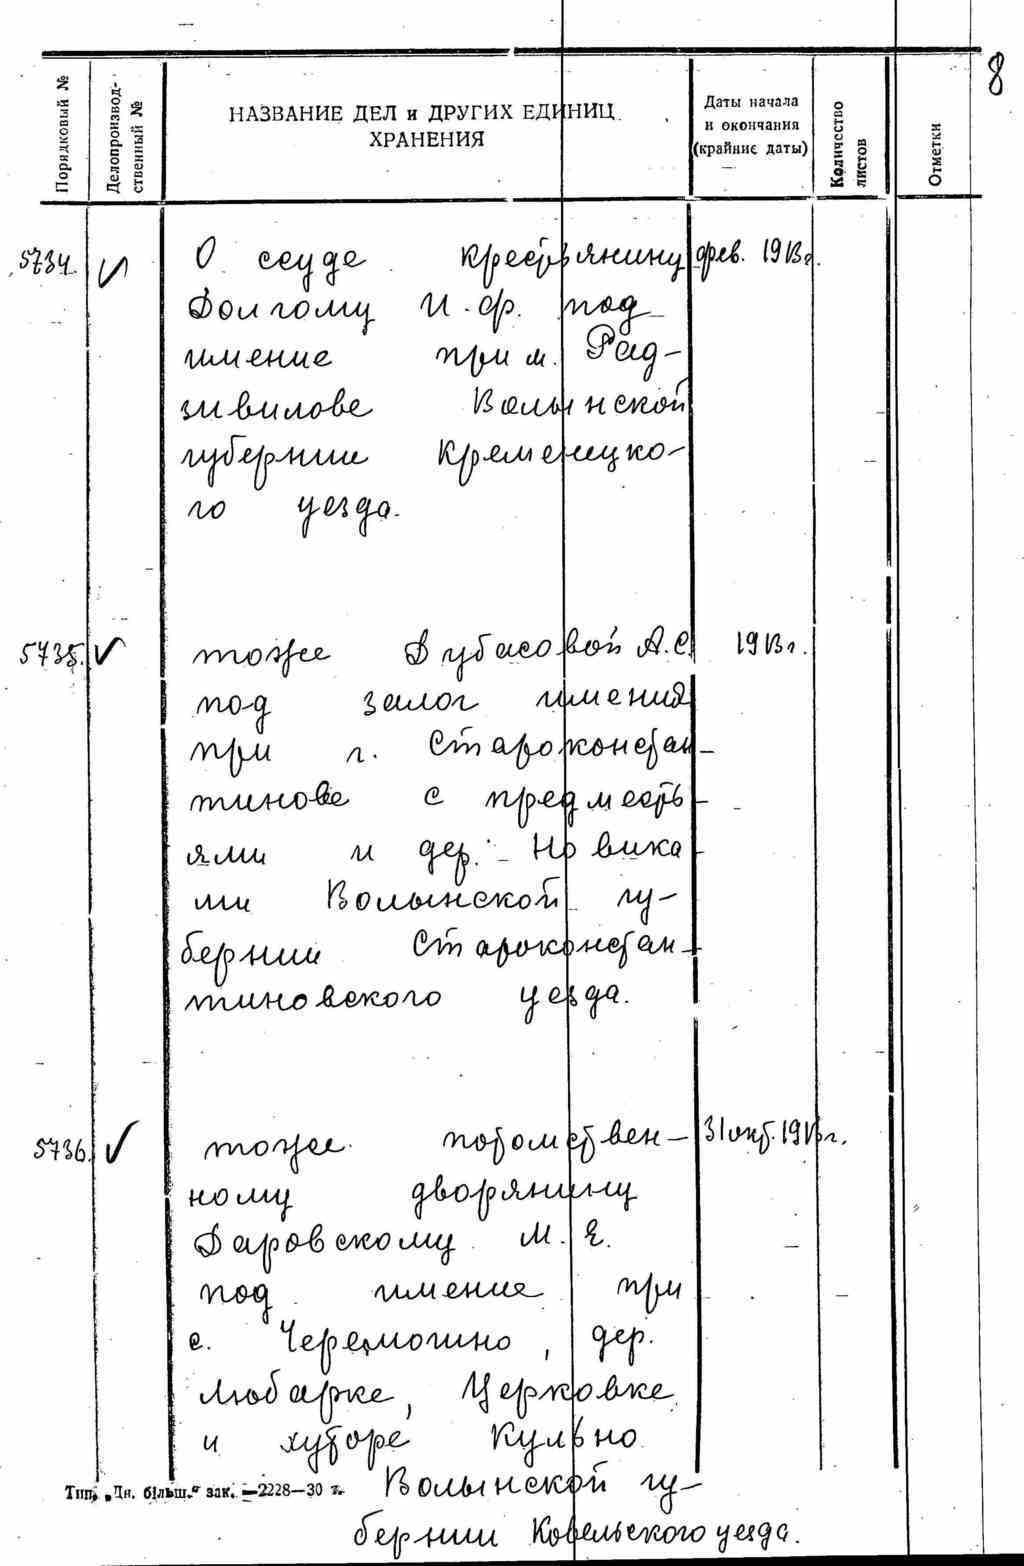 8
Порядковый №
Делопроизвод-
ственный №
НАЗВАНИЕ ДЕЛ и ДРУГИХ ЕДИНИЦ
ХРАНЕНИЯ
Даты начала
и окончания
(крайние даты)
Количество
листов
Отметки
5734. О ссуде крестьянину фев. 1913г.
Долгому И.Ф. под
имение при м. Рад-
зивилове Волынской
губернии Кременецко-
го уезда.
5735. тоже Дубасовой А.С. 1913г.
под залог имения
при г. Староконстан-
тинове с предместь-
ями и дер. Новика
ми Волынской гу-
бернии Староконстан-
тиновского уезда.
5736. тоже потомствен- 31 окт. 1913г.
ному дворянину
Даровскому М.Е.
под имение при
с. Черемошно, дер.
Любарке, Церковке
и хуторе Кульно
Волынской гу-
бернии Ковельского уезда.
Тип. „Дн. більш.“ зак. —2228—30 т.